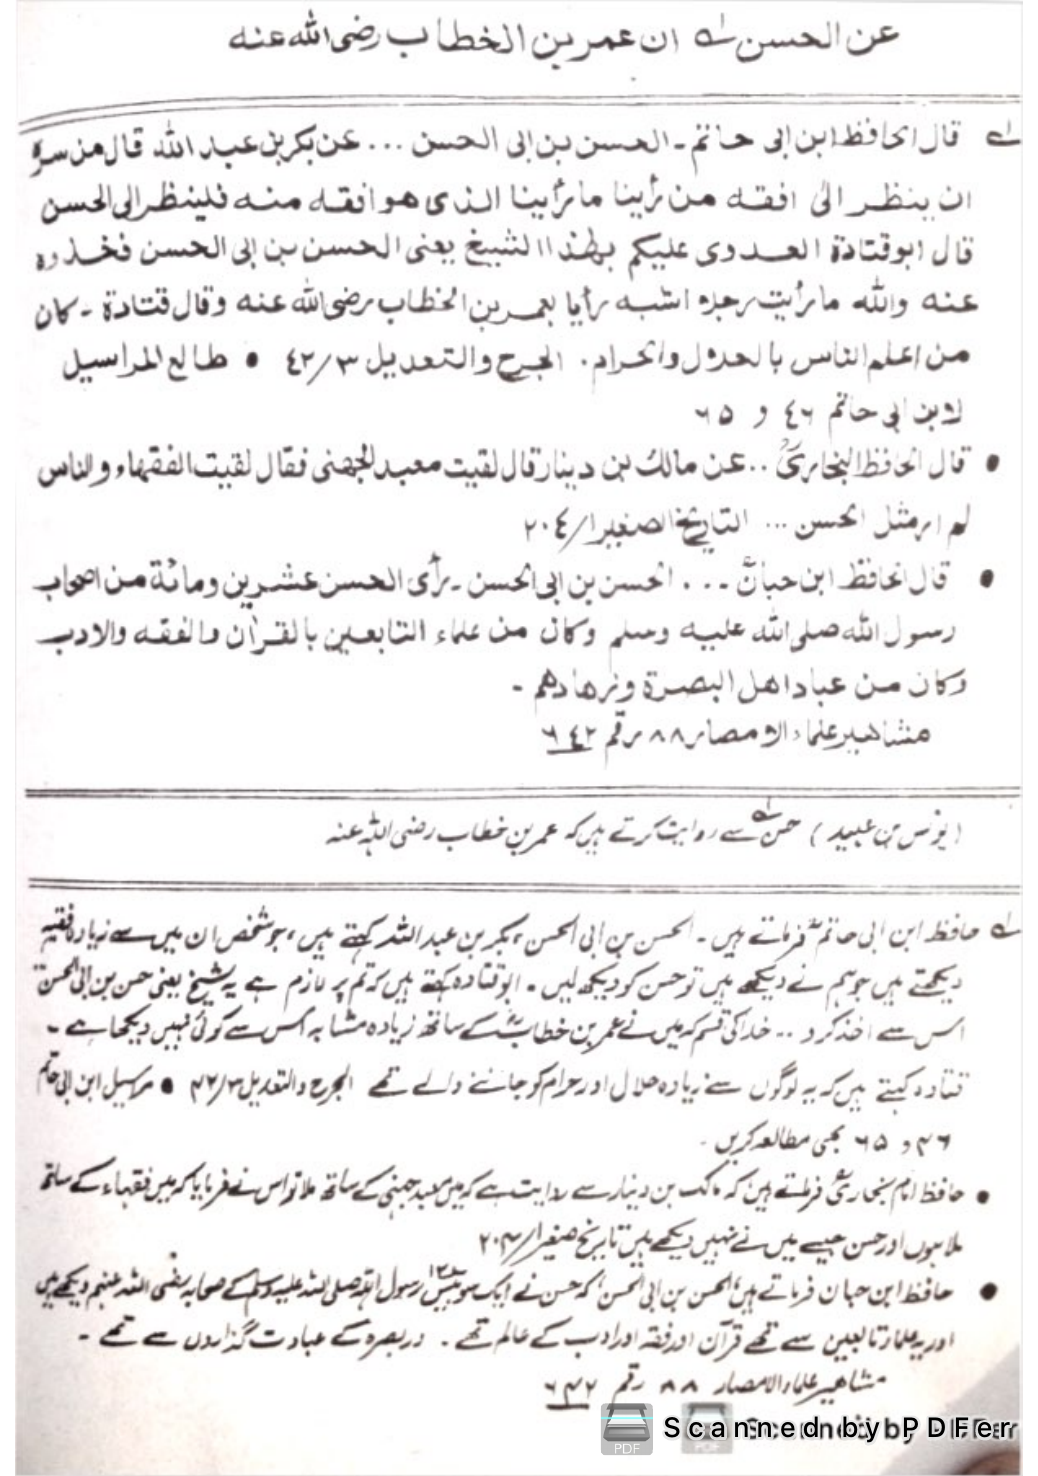 عن الحسن لہ ان عمر بن الخطاب رضی اللہ عنہ
لہ قال الحافظ ابن ابی حاتم ۔ الحسن بن ابی الحسن ... عن بکر بن عبد اللہ قال من سرہ
ان ینظر الی افقہ من رأینا ما رأینا الذی ھو افقہ منہ فلینظر الی الحسن
قال ابو قتادۃ العدوی علیکم بھذا الشیخ یعنی الحسن بن ابی الحسن فخذوہ
عنہ واللہ ما رأیت رجلا اشبہ رأیا بعمر بن الخطاب رضی اللہ عنہ وقال قتادۃ ۔ کان
من اعلم الناس بالحلال والحرام ۔ الجرح والتعدیل ٤٢/٣ • طالع المراسیل
لابن ابی حاتم ٤٦ و ٦٥
• قال الحافظ البخاریؒ .. عن مالک بن دینار قال لقیت معبد الجھنی فقال لقیت الفقھاء والناس
لم ار مثل الحسن ... التاریخ الصغیر ١/٢٠٤
• قال الحافظ ابن حبانؒ ... الحسن بن ابی الحسن ۔ رأی الحسن عشرین ومائۃ من اصحاب
رسول اللہ صلی اللہ علیہ وسلم وکان من علماء التابعین بالقرآن والفقہ والادب
وکان من عباد اھل البصرۃ وزھادھم ۔
مشاھیر علماء الامصار ٨٨ رقم ٦٤٢
(یونس بن عبید) حسن لہ سے روایت کرتے ہیں کہ عمر بن خطاب رضی اللہ عنہ
لہ حافظ ابن ابی حاتمؒ فرماتے ہیں ۔ الحسن بن ابی الحسن ، بکر بن عبد اللہ کہتے ہیں ، جو شخص ان میں سے زیادہ فقیہ
دیکھتے ہیں جو ہم نے دیکھے ہیں تو حسن کو دیکھ لیں ۔ ابو قتادہ کہتے ہیں کہ تم پر لازم ہے یہ شیخ یعنی حسن بن ابی الحسن
اس سے اخذ کرو .. خدا کی قسم کہ میں نے عمر بن خطابؓ کے ساتھ زیادہ مشابہ اس سے کوئی نہیں دیکھا ہے ۔
قتادہ کہتے ہیں کہ یہ لوگوں سے زیادہ حلال اور حرام کو جاننے والے تھے الجرح والتعدیل ۴۲/۳ • مراسیل ابن ابی حاتم
۴۶ و ۶۵ بھی مطالعہ کریں ۔
• حافظ امام بخاریؒ فرماتے ہیں کہ مالک بن دینار سے روایت ہے کہ میں معبد جہنی کے ساتھ ملا تو اس نے فرمایا کہ میں فقہاء کے ساتھ
ملا ہوں اور حسن جیسے میں نے نہیں دیکھے ہیں تاریخ صغیر ۱/۲۰۴
• حافظ ابن حبان فرماتے ہیں الحسن بن ابی الحسن ، کہ حسن نے ایک سو بیس ۱۲۰ رسول اللہ صلی اللہ علیہ وسلم کے صحابہ رضی اللہ عنہم دیکھے ہیں
اور یہ علماء تابعین سے تھے قرآن اور فقہ اور ادب کے عالم تھے ۔ اور بصرہ کے عبادت گذاروں سے تھے ۔
مشاھیر علماء الامصار ۸۸ رقم ۶۴۲
PDF PDF Scanned by PDFer